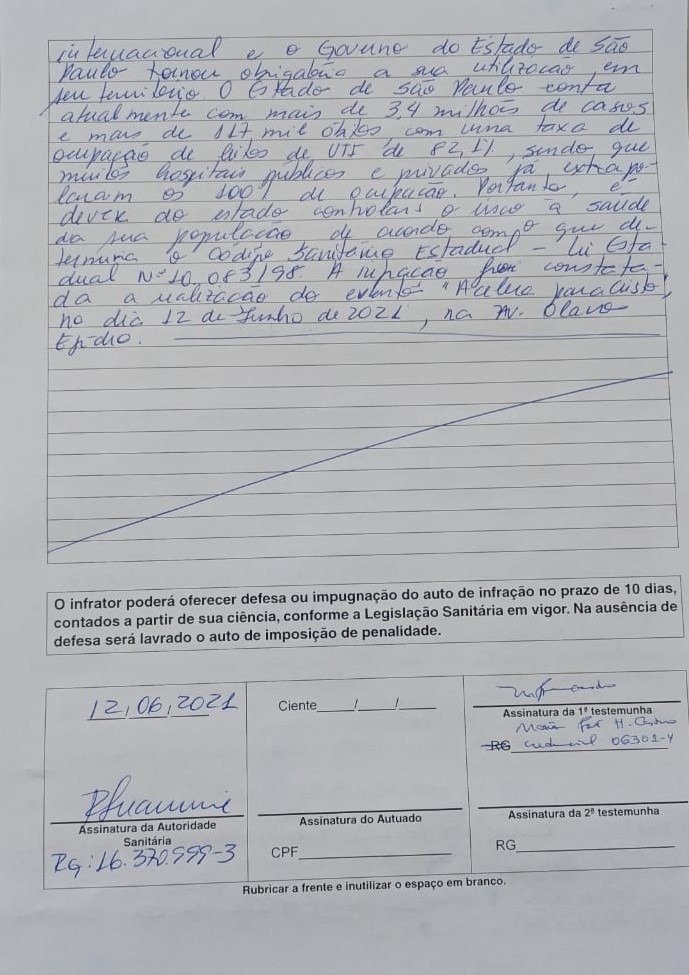 internacional e o Governo do Estado de São
Paulo tornou obrigatória a sua utilização em
seu território O Estado de São Paulo conta
atualmente com mais de 3,4 milhões de casos
e mais de 117 mil óbitos, com uma taxa de
ocupação de leitos de UTI de 82,1%, sendo que
muitos hospitais públicos e privados já extrapo-
laram os 100% de ocupação. Portanto, é
dever do estado controlar o risco à saúde
da sua população de acordo com o que de-
termina o Código Sanitário Estadual - Lei Esta-
dual Nº 10.083/98. A infração foi constata-
da a realização do evento "Acelera para Cristo",
no dia 12 de Junho de 2021, na Av. Olavo
O infrator poderá oferecer defesa ou impugnação do auto de infração no prazo de 10 dias,
contados a partir de sua ciência, conforme a Legislação Sanitária em vigor. Na ausência de
defesa será lavrado o auto de imposição de penalidade.
12,06,2021
Assinatura da Autoridade
Sanitária
RG: 16.370.999-3
Ciente ___/___/___
Assinatura do Autuado
CPF
Assinatura da 1ª testemunha
RG credencial 06301-4
Assinatura da 2ª testemunha
RG
Rubricar a frente e inutilizar o espaço em branco.